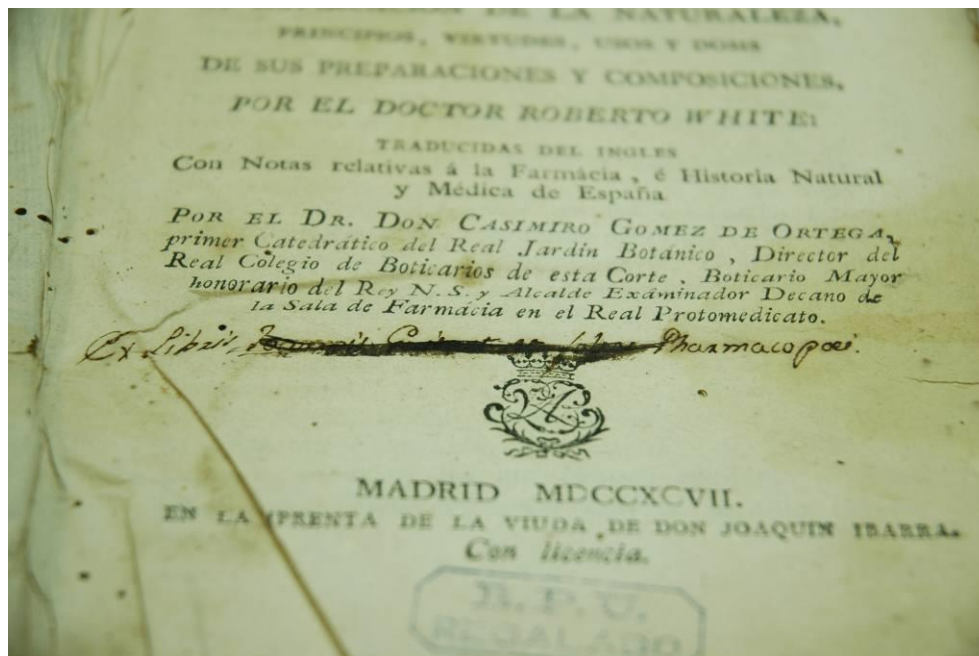 DE LA NATURALEZA,
PRINCIPIOS, VIRTUDES, USOS Y DOSIS
DE SUS PREPARACIONES Y COMPOSICIONES,
POR EL DOCTOR ROBERTO WHITE:
TRADUCIDAS DEL INGLES
Con Notas relativas á la Farmácia, é Historia Natural
y Médica de España
POR EL DR. DON CASIMIRO GOMEZ DE ORTEGA,
primer Catedrático del Real Jardin Botánico, Director del
Real Colegio de Boticarios de esta Corte, Boticario Mayor
honorario del Rey N. S. y Alcalde Exâminador Decano de
la Sala de Farmácia en el Real Protomedicato.
Ex Libris Pharmacopœi.
MADRID MDCCXCVII.
EN LA IPRENTA DE LA VIUDA DE DON JOAQUIN IBARRA.
Con licencia.
B. P. U.
REGALADO